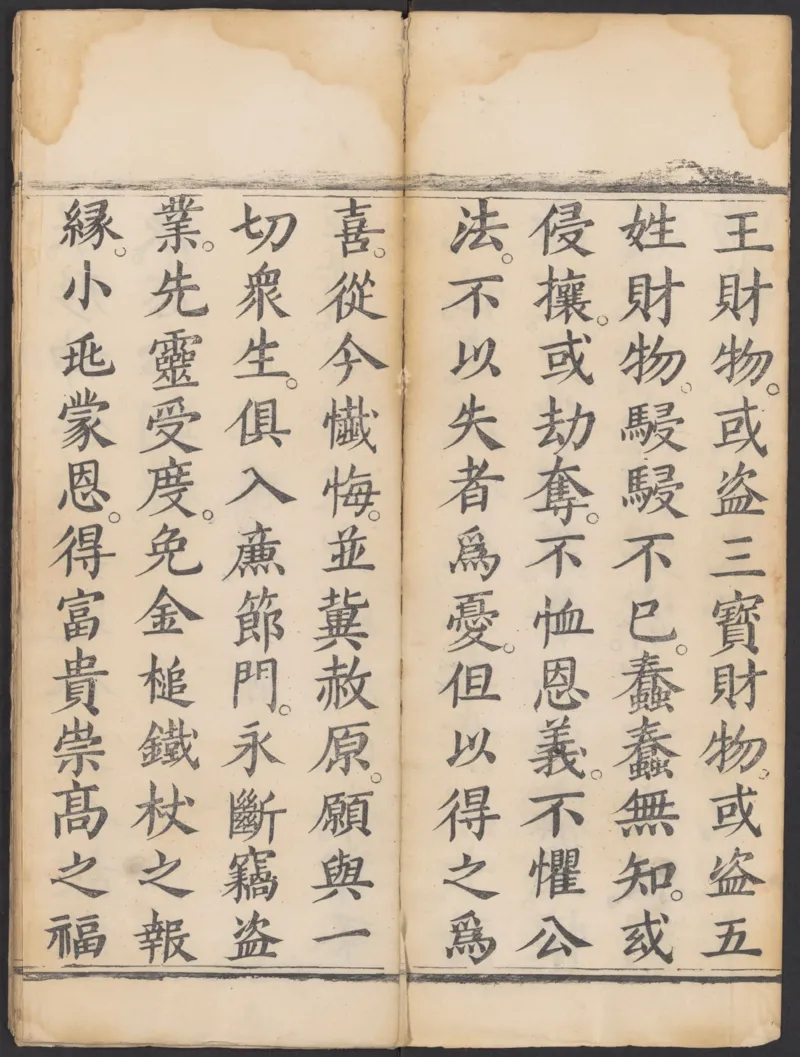 王財物。或盜三寳財物。或盜五
姓財物。駸駸不巳。蠢蠢無知。或
侵攘。或劫奪。不恤恩義。不懼公
法。不以失者爲憂。但以得之爲
喜。從今懺悔。並冀赦原。願與一
切衆生。俱入㢘節門。永斷竊盜
業。先靈受度。免金槌鐵杖之報
縁。小兆蒙恩。得富貴崇髙之福